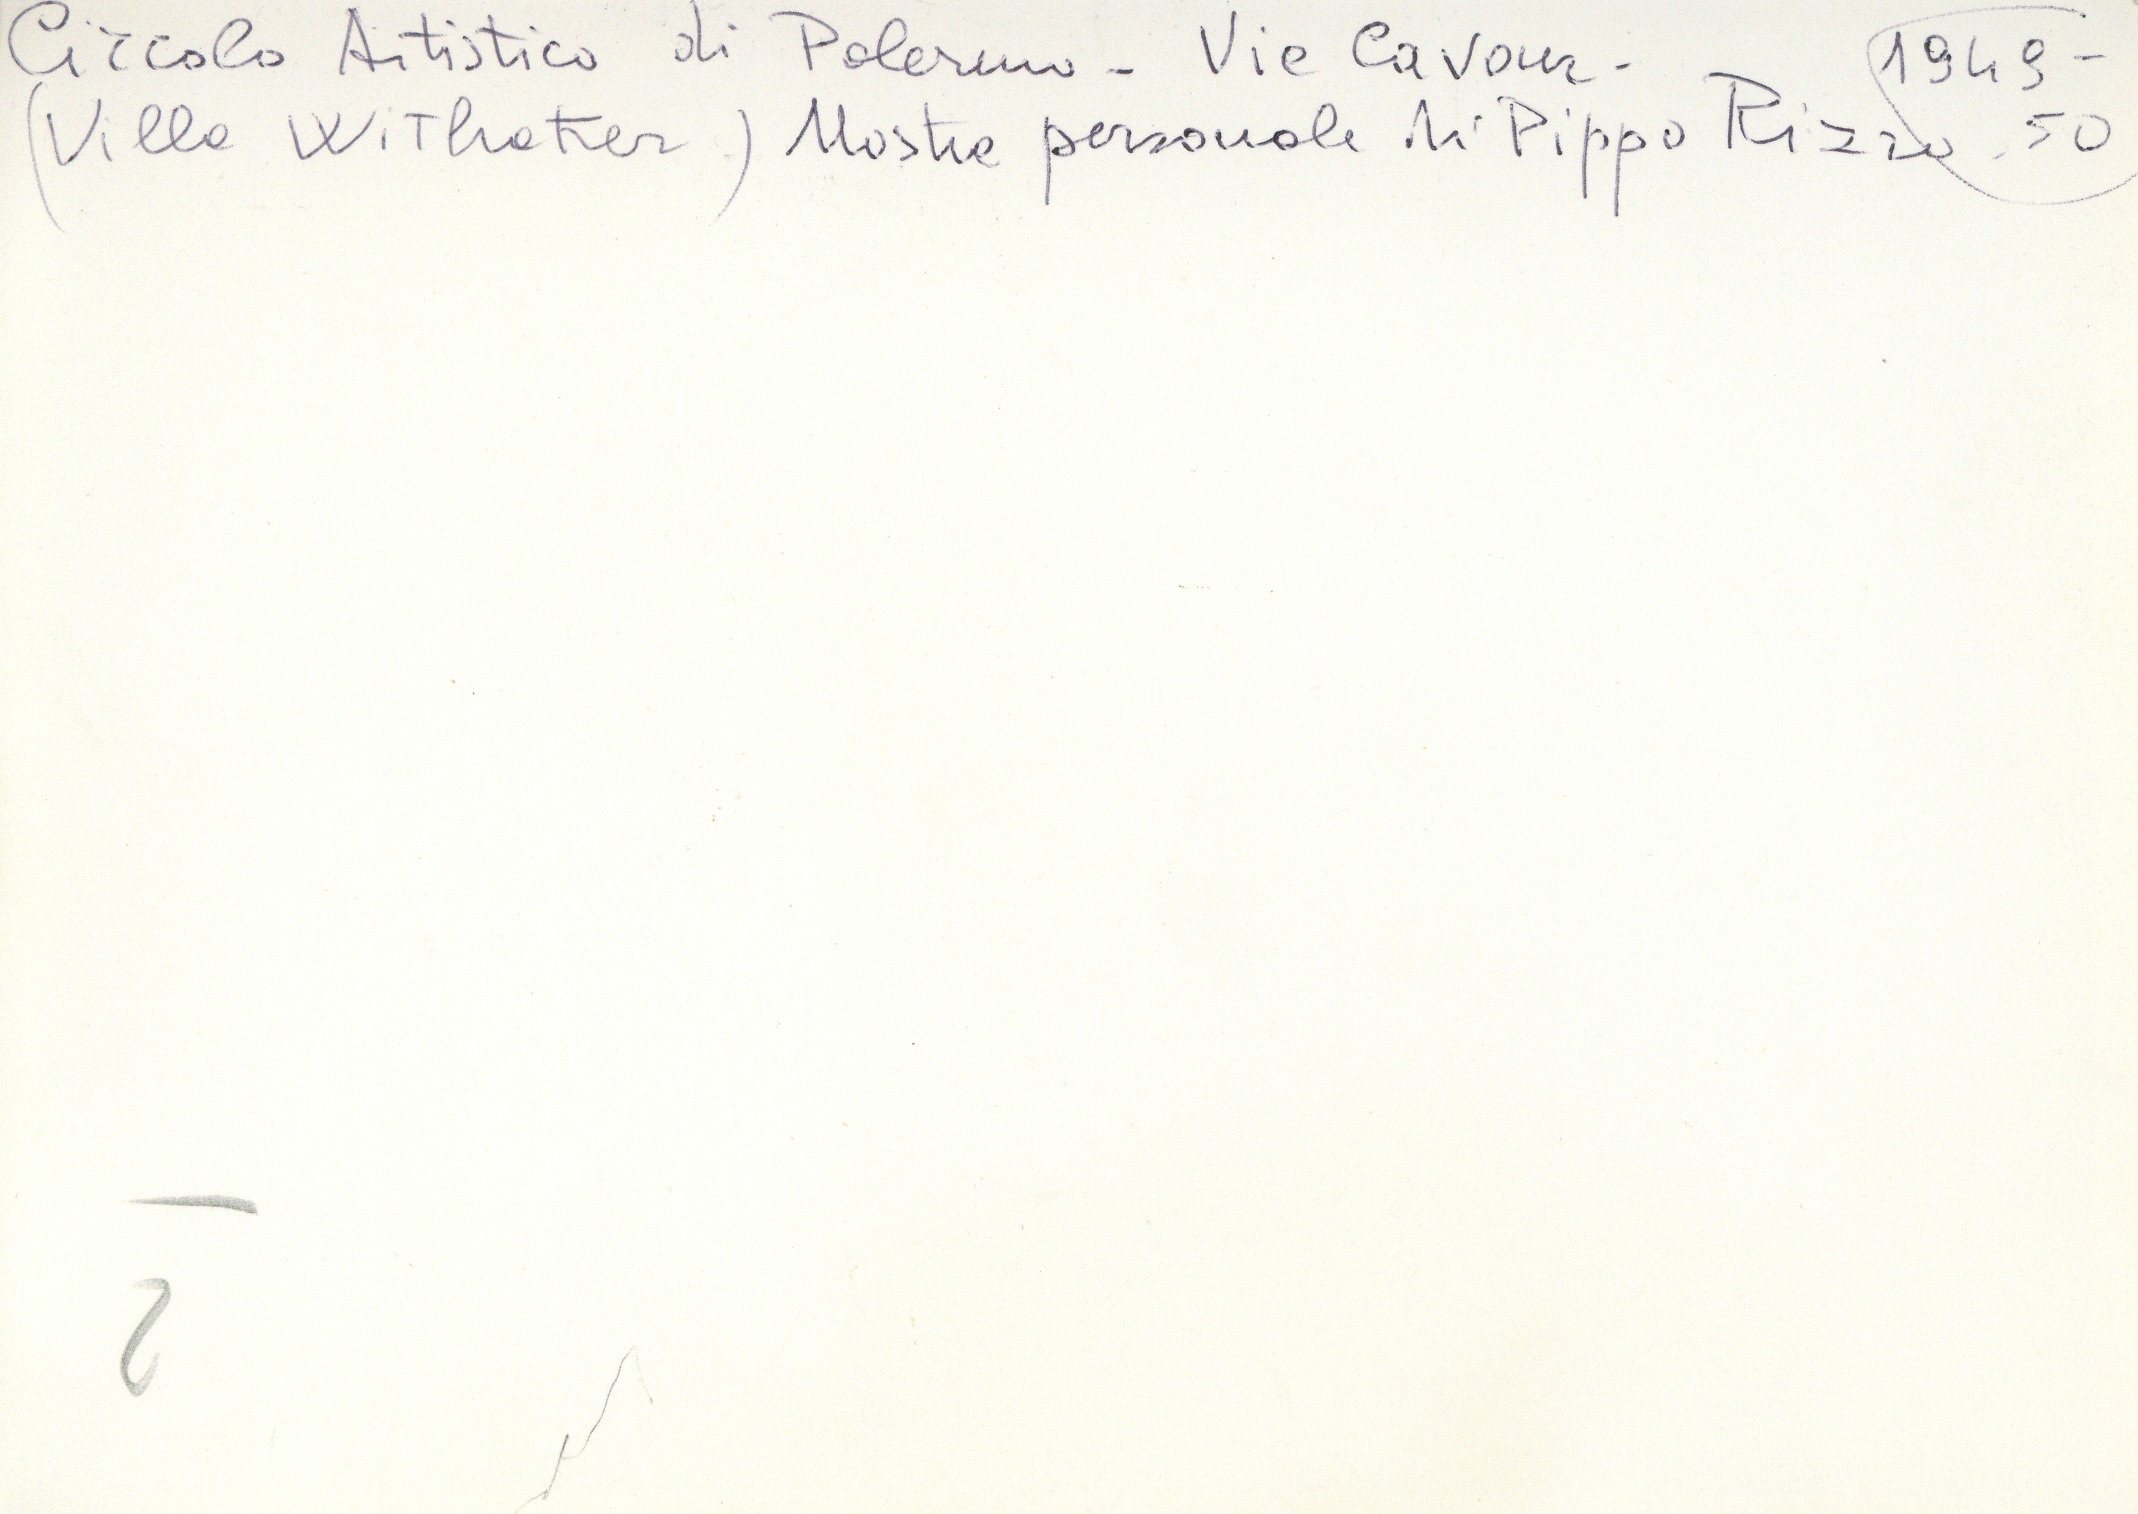 Circolo Artistico di Palermo - Via Cavour - 1949-
(Villa Withaker) Mostra personale di Pippo Rizzo 50
2